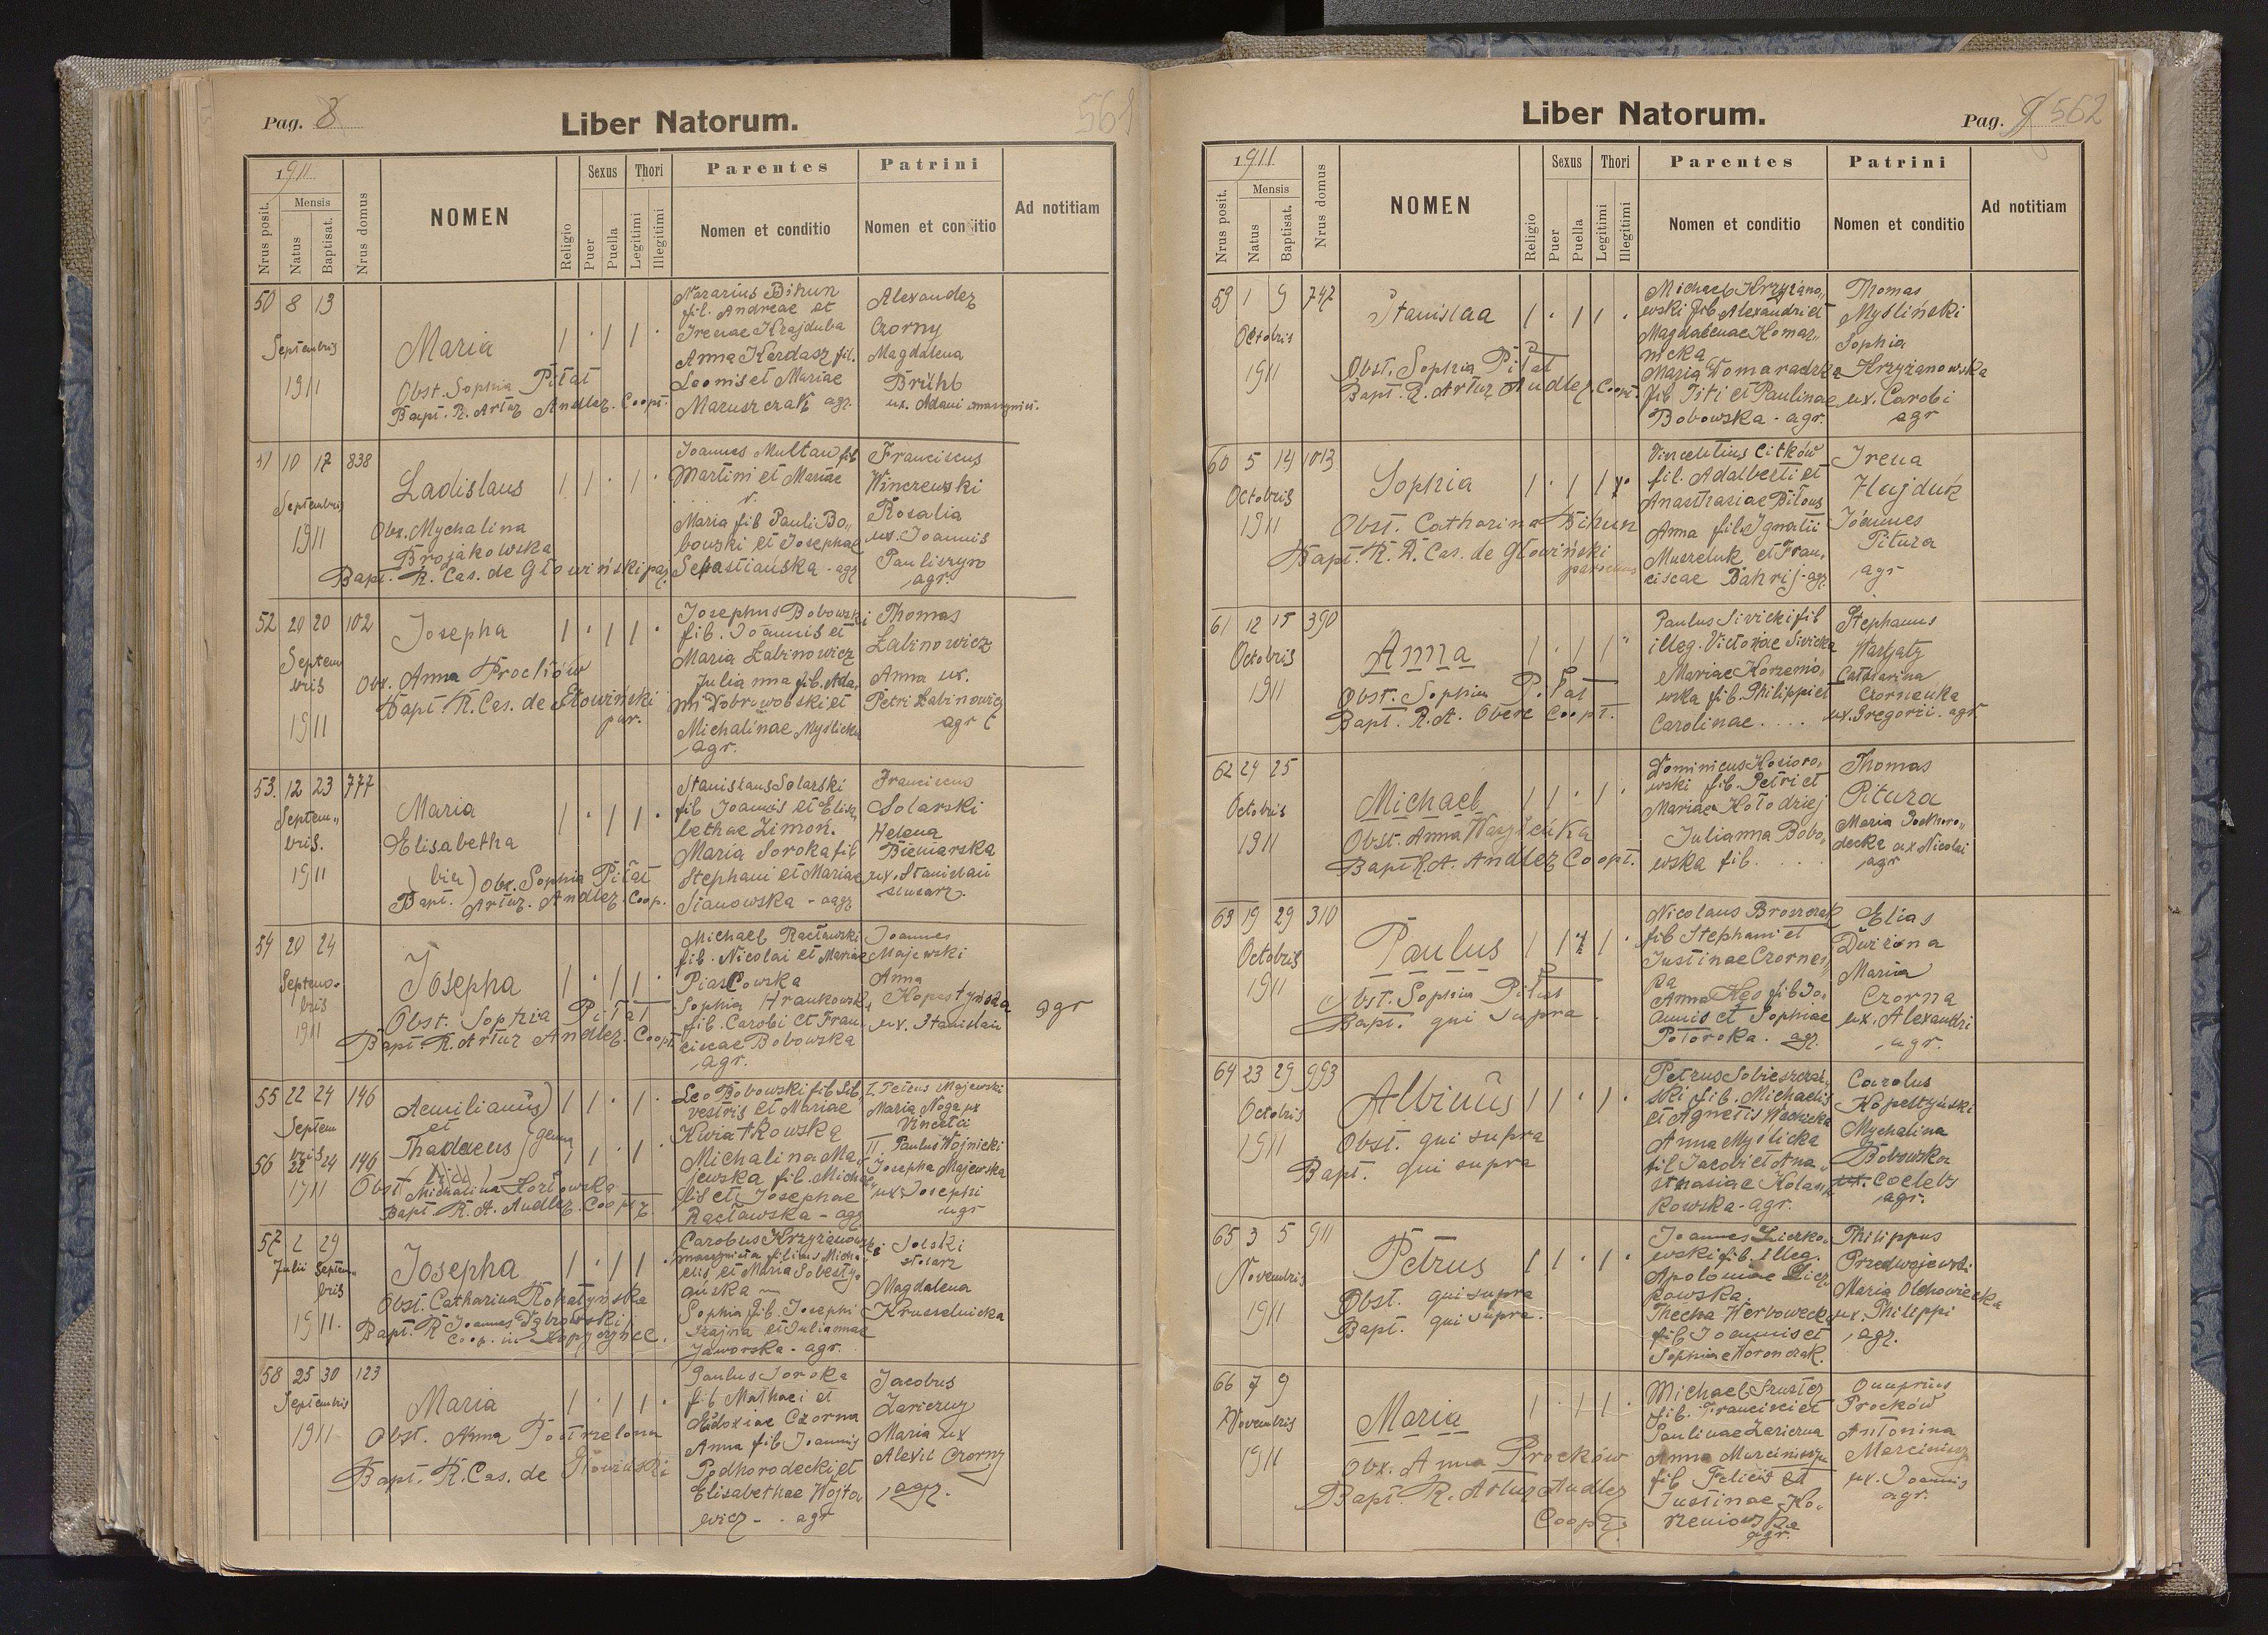 Pag. 8
Liber Natorum.
561
1911
Nrus posit.
Mensis
Natus
Baptisat.
Nrus domus
NOMEN
Religio
Sexus
Puer
Puella
Thori
Legitimi
Illegitimi
Parentes
Nomen et conditio
Patrini
Nomen et conditio
Ad notitiam
50 8 13
Septembris
1911
Maria
Obst. Sophia Pitat
Bapt. R. Artur Andler. Coopt.
Nazarius Bihun
fil. Andreae et
Irenae Krajduba
Anna Kardasz fil.
Leonis et Mariae
Maruszczak agr.
Alexander
Czorny
Magdalena
Brühl
ux. Adami
51 10 17 838
Septembris
1911
Ladislaus
Obx. Mychalina
Brojakowska
Bapt. R. Cas. de Głowiński par.
Joannes Multan fil
Martini et Mariae
Maria fil Pauli Bo„
bowski et Josephae
Sebastiańska - agr
Franciscus
Winczewski
Rosalia
ux. Joannis
Pauliszyn
agr.
52 20 20 102
Septem
bris
1911
Josepha
Obx. Anna Proćków
Bapt. R. Cas. de Głowiński
par.
Josephus Bobowski
fil. Joannis et
Maria Łabinowicz
Julianna fil. Ada„
mi Dobrowolski et
Michalinae Myślicka
agr.
Thomas
Łabinowicz
Anna ux.
Petri Łabinowicz
agr
53. 12 23 777
Septem„
bris.
1911
Maria
Elisabetha
(bin) Obx. Sophia Pitat
Bapt. Artur. Andler. Coop.
Stanislaus Solarski
fil Joannis et Elisa„
bethae Zimoń.
Maria Soroka fil
Stephani et Mariae
Sianowska - agr
Franciscus
Solarski
Helena
Bieniarska
ux. Stanislai
54 20 24
Septem„
bris
1911
Josepha
Obst. Sophia Pitat
Bapt. R. Artur Andler. Coopt.
Michael Racławski
fil. Nicolai et Mariae
Piaskowska
Sophia Hrankowska
fil. Caroli et Fran„
ciscae Bobowska
agr.
Joannes
Majewski
Anna
Kopestyńska
ux. Stanislai
agr
55 22 24 146
Septem
bris
Aemilianus)
et
Thaddaeus
56 22 24 146
1911
Obst Michalina Kozłowska
Bapt. R. A. Andler. Coopt.
Leo Bobowski fil. Sil„
vestris et Mariae
Kwiatkowska
Michalina Ma„
jewska fil. Micha„
lis et Josephae
Racławska - agr
I. Petrus Majewski
Maria Noga ux
Vincetii
II. Paulus Wojnicki
Josepha Majewska
ux. Josephi
agr
57 2 29
Julii Septem„
bris
1911.
Josepha
Obst. Catharina Rohatyńska
Bapt. R Joannes Dąbrowski
Coop. in Kopyczyńce.
Carolus Krzyżanowski
filius Micha„
elis et Maria Sobesty„
ańska
Sophia fil. Josephi
Krajna et Julianna
Jaworska - agr.
Solski
stolarz
Magdalena
Kruszelnicka
58 25 30 123
Septembris
1911
Maria
Obst. Anna Postrzelona
Bapt. R. Cas. de Głowiński
Paulus Soroka
fil Mathaei et
Eudoxiae Czorna
Anna fil Joannis
Podhorodecki et
Elisabethae Wojto„
wicz - . agr
Jacobus
Zariczny
Maria ux
Alexii Czorny
agr.
Liber Natorum.
Pag. 9 562
1911
Nrus posit.
Mensis
Natus
Baptisat.
Nrus domus
NOMEN
Religio
Sexus
Puer
Puella
Thori
Legitimi
Illegitimi
Parentes
Nomen et conditio
Patrini
Nomen et conditio
Ad notitiam
59 1 9 747
Octobris
1911
Stanislaa
Obst. Sophia Pitat
Bapt. R. Artur Andler. Coopt.
Michael Krzyżano„
wski fil Alexandri et
Magdalenae Komar„
nicka
Maria Domaradzka
fil Titi et Paulinae
Bobowska - agr.
Thomas
Myśliński
Sophia
Krzyżanowska
ux. Caroli
agr
60 5 14 1013
Octobris
1911
Sophia
Obst. Catharina Bihun
Bapt. R. D. Cas. de Głowiński
parochus
Vincentius Citków
fil. Adalberti et
Anastasiae Bilous
Anna fil. Ignatii
Muszeluk et Fran„
ciscae Bahrij - agr.
Irena
Hajduk
Joannes
Pitura
agr
61 12 15 390
Octobris
1911
Anna
Obst. Sophia Pitat
Bapt. R. A. Coopt.
Paulus Siwicki fil
illeg. Victoriae Siwicka
Mariae Korzenio„
wska fil. Philippi et
Carolinae . . . .
Stephanus
Catharina
Czornenka
ux. Gregorii. agr
62 24 25
Octobris
1911
Michael
Obst. Anna
Bapt R. A. Andler Coopt.
Dominicus Kosioro„
wski fil. Petri et
Mariae Kołodziej
Julianna Bobo„
wska fil. . . .
Thomas
Pitura
Maria Podhoro„
decka ux Nicolai
agr
63 19 29 310
Octobris
1911
Paulus
Obst. Sophia Pitat
Bapt. qui supra
Nicolaus Broszczak
fil Stephani et
Justinae Czornen„
ka
Anna fil Jo„
annis et Sophiae
Potoroka. agr.
Elias
Maria
Czorna
ux. Alexandri
agr.
64 23 29 993
Octobris
1911
Albinus
Obst. qui supra
Bapt. qui supra
Petrus Sobieszczań„
ski fil. Michaelis
et Agnetis
Anna Myślicka
fil Jacobi et Ana„
stasiae Kolasn
kowska - agr.
Carolus
Kopestyński
Mychalina
Bobowska
ux. coelebs
agr.
65 3 5 911
Novembris
1911
Petrus
Obst. qui supra
Bapt. qui supra.
Joannes Liczko„
wski fil. illeg.
Apoloniae Licz„
kowska.
Thecha Werbowecka
fil Joannis et
Sophiae Woronczak.
Philippus
Przedwojewski
Maria Olchowiecka
ux. Philippi
agr.
66 7 9
Novembris
1911
Maria
Obx. Anna Proćków
Bapt. R. Artur Andler
Coopt.
Michael Szuster
fil. Francisci et
Paulinae Zariczna
Anna Marciniszyn
fil Felicis et
Justinae Ko„
rzeniowska
agr.
Onuprius
Proćków
Antonina
Marciniszyn
ux. Joannis
agr.